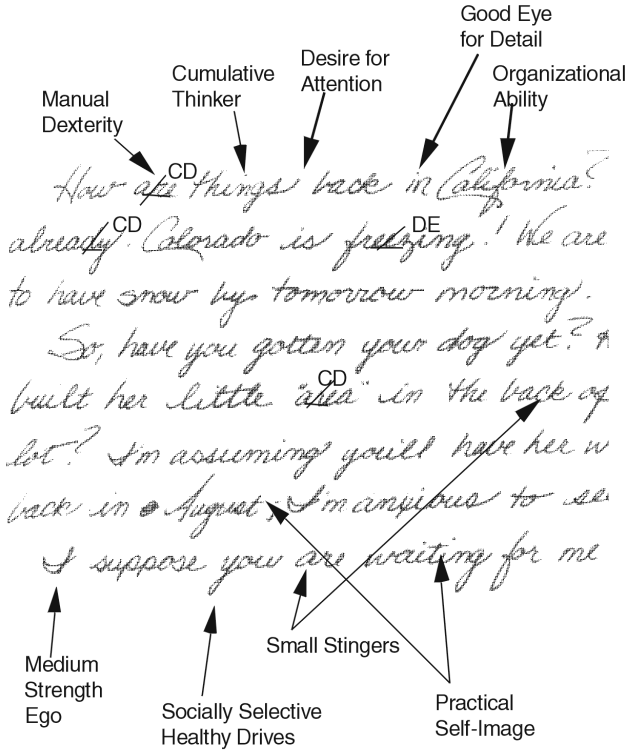 Good Eye
for Detail
Desire for
Attention
Organizational
Ability
Cumulative
Thinker
Manual
Dexterity
CD
How are things back in California?
CD
DE
already. Colorado is freezing! We are
to have snow by tomorrow morning.
So, have you gotten your dog yet?
CD
built her little "area" in the back of
lot? I'm assuming you'll have her w
back in August. I'm anxious to see
I suppose you are waiting for me
Small Stingers
Medium
Strength
Ego
Socially Selective
Healthy Drives
Practical
Self-Image